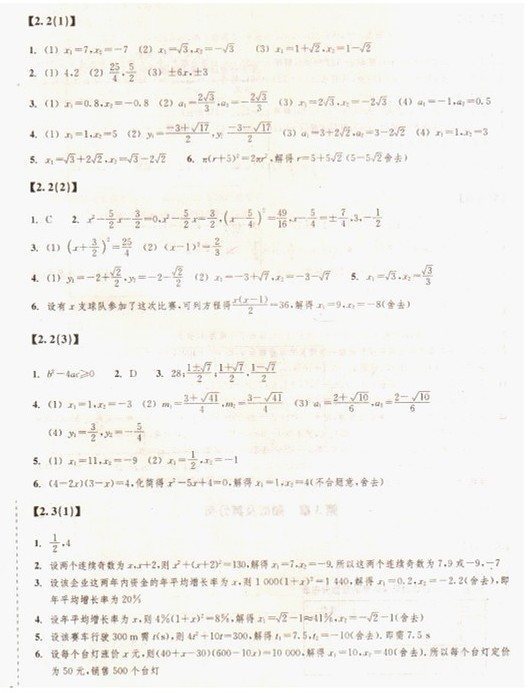 【2.2(1)】
1. (1) x₁=7,x₂=-7 (2) x₁=√3,x₂=-√3 (3) x₁=1+√2,x₂=1-√2
2. (1) 4,2 (2) 25/4,5/2 (3) ±6x,±3
3. (1) x₁=0.8,x₂=-0.8 (2) a₁=2√3/3,a₂=-2√3/3 (3) x₁=2√3,x₂=-2√3 (4) a₁=-1,a₂=0.5
4. (1) x₁=1,x₂=5 (2) y₁=(-3+√17)/2,y₂=(-3-√17)/2 (3) a₁=3+2√2,a₂=3-2√2 (4) x₁=1,x₂=3
5. x₁=√3+2√2,x₂=√3-2√2 6. π(r+5)²=2πr²,解得 r=5+5√2 (5-5√2舍去)
【2.2(2)】
1. C 2. x²-5/2x-3/2=0,x²-5/2x=3/2,(x-5/4)²=49/16,x-5/4=±7/4,3,-1/2
3. (1) (x+3/2)²=25/4 (2) (x-1)²=2/3
4. (1) y₁=-2+√2/2,y₂=-2-√2/2 (2) x₁=-3+√7,x₂=-3-√7 5. x₁=√3,x₂=√3/3
6. 设有 x 支球队参加了这次比赛,可列方程得x(x-1)/2=36,解得 x₁=9,x₂=-8(舍去)
【2.2(3)】
1. b²-4ac≥0 2. D 3. 28;(1±√7)/2;(1+√7)/2,(1-√7)/2
4. (1) x₁=1,x₂=-3 (2) m₁=(3+√41)/4,m₂=(3-√41)/4 (3) a₁=(2+√10)/6,a₂=(2-√10)/6
(4) y₁=3/2,y₂=-5/4
5. (1) x₁=11,x₂=-9 (2) x₁=1/2,x₂=-1
6. (4-2x)(3-x)=4,化简得 x²-5x+4=0,解得 x₁=1,x₂=4(不合题意,舍去)
【2.3(1)】
1. 1/2,4
2. 设两个连续奇数为 x,x+2,则 x²+(x+2)²=130,解得 x₁=7,x₂=-9,所以这两个连续奇数为 7,9 或-9,-7
3. 设该企业这两年内资金的年平均增长率为 x,则 1 000(1+x)²=1 440,解得 x₁=0.2,x₂=-2.2(舍去),即
年平均增长率为 20%
4. 设年平均增长率为 x,则 4%(1+x)²=8%,解得 x₁=√2-1≈41%,x₂=-√2-1(舍去)
5. 设该赛车行驶 300 m 需 t(s),则 4t²+10t=300,解得 t₁=7.5,t₂=-10(舍去).即需 7.5 s
6. 设每个台灯涨价 x 元,则(40+x-30)(600-10x)=10 000,解得 x₁=10,x₂=40(舍去).所以每个台灯定价
为 50 元,销售 500 个台灯